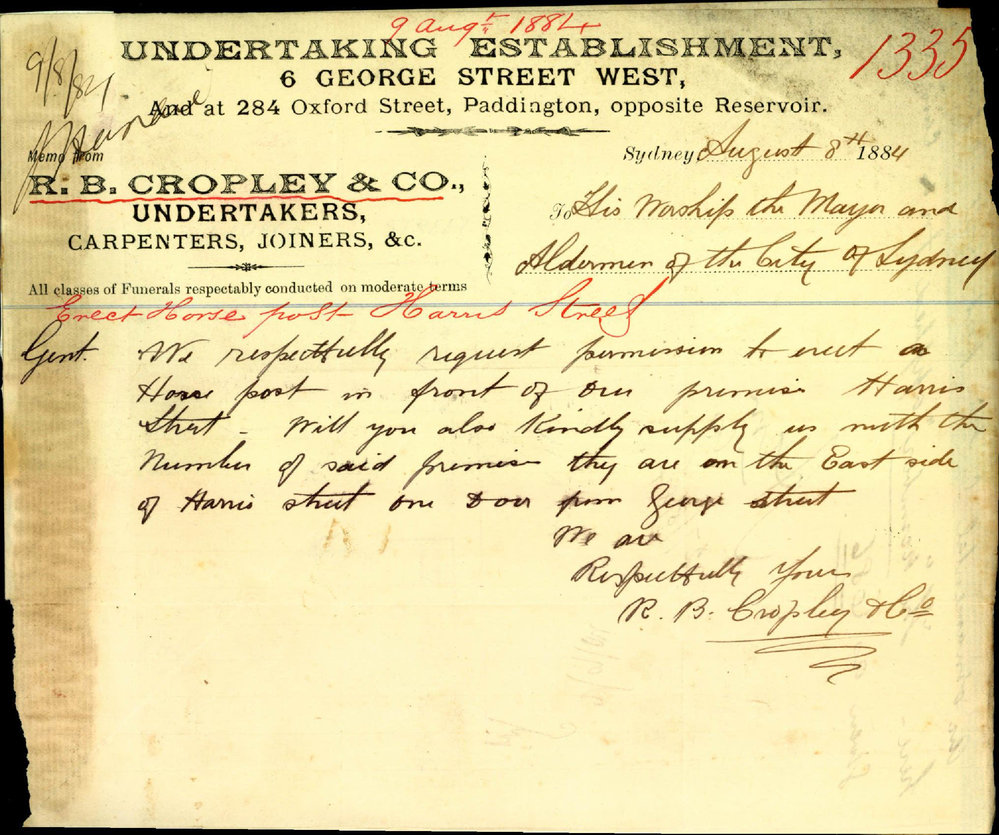 9 Augt 1884
UNDERTAKING ESTABLISHMENT,
1335
6 GEORGE STREET WEST,
9/8/84
And at 284 Oxford Street, Paddington, opposite Reservoir.
Memo from
Sydney August 8TH 1884
R. B. CROPLEY & CO.,
UNDERTAKERS,
CARPENTERS, JOINERS, &c.
To His Worship the Mayor and
Aldermen of the City of Sydney
All classes of Funerals respectably conducted on moderate terms
Erect Horse post Harris Street
Gent. We respectfully request permission to erect a
Horse post in front of our premise Harris
Street - Will you also Kindly supply us with the
Number of said premise they are on the East side
of Harris street one Door from George street
We are
Respectfully Yours
R. B. Cropley & Co